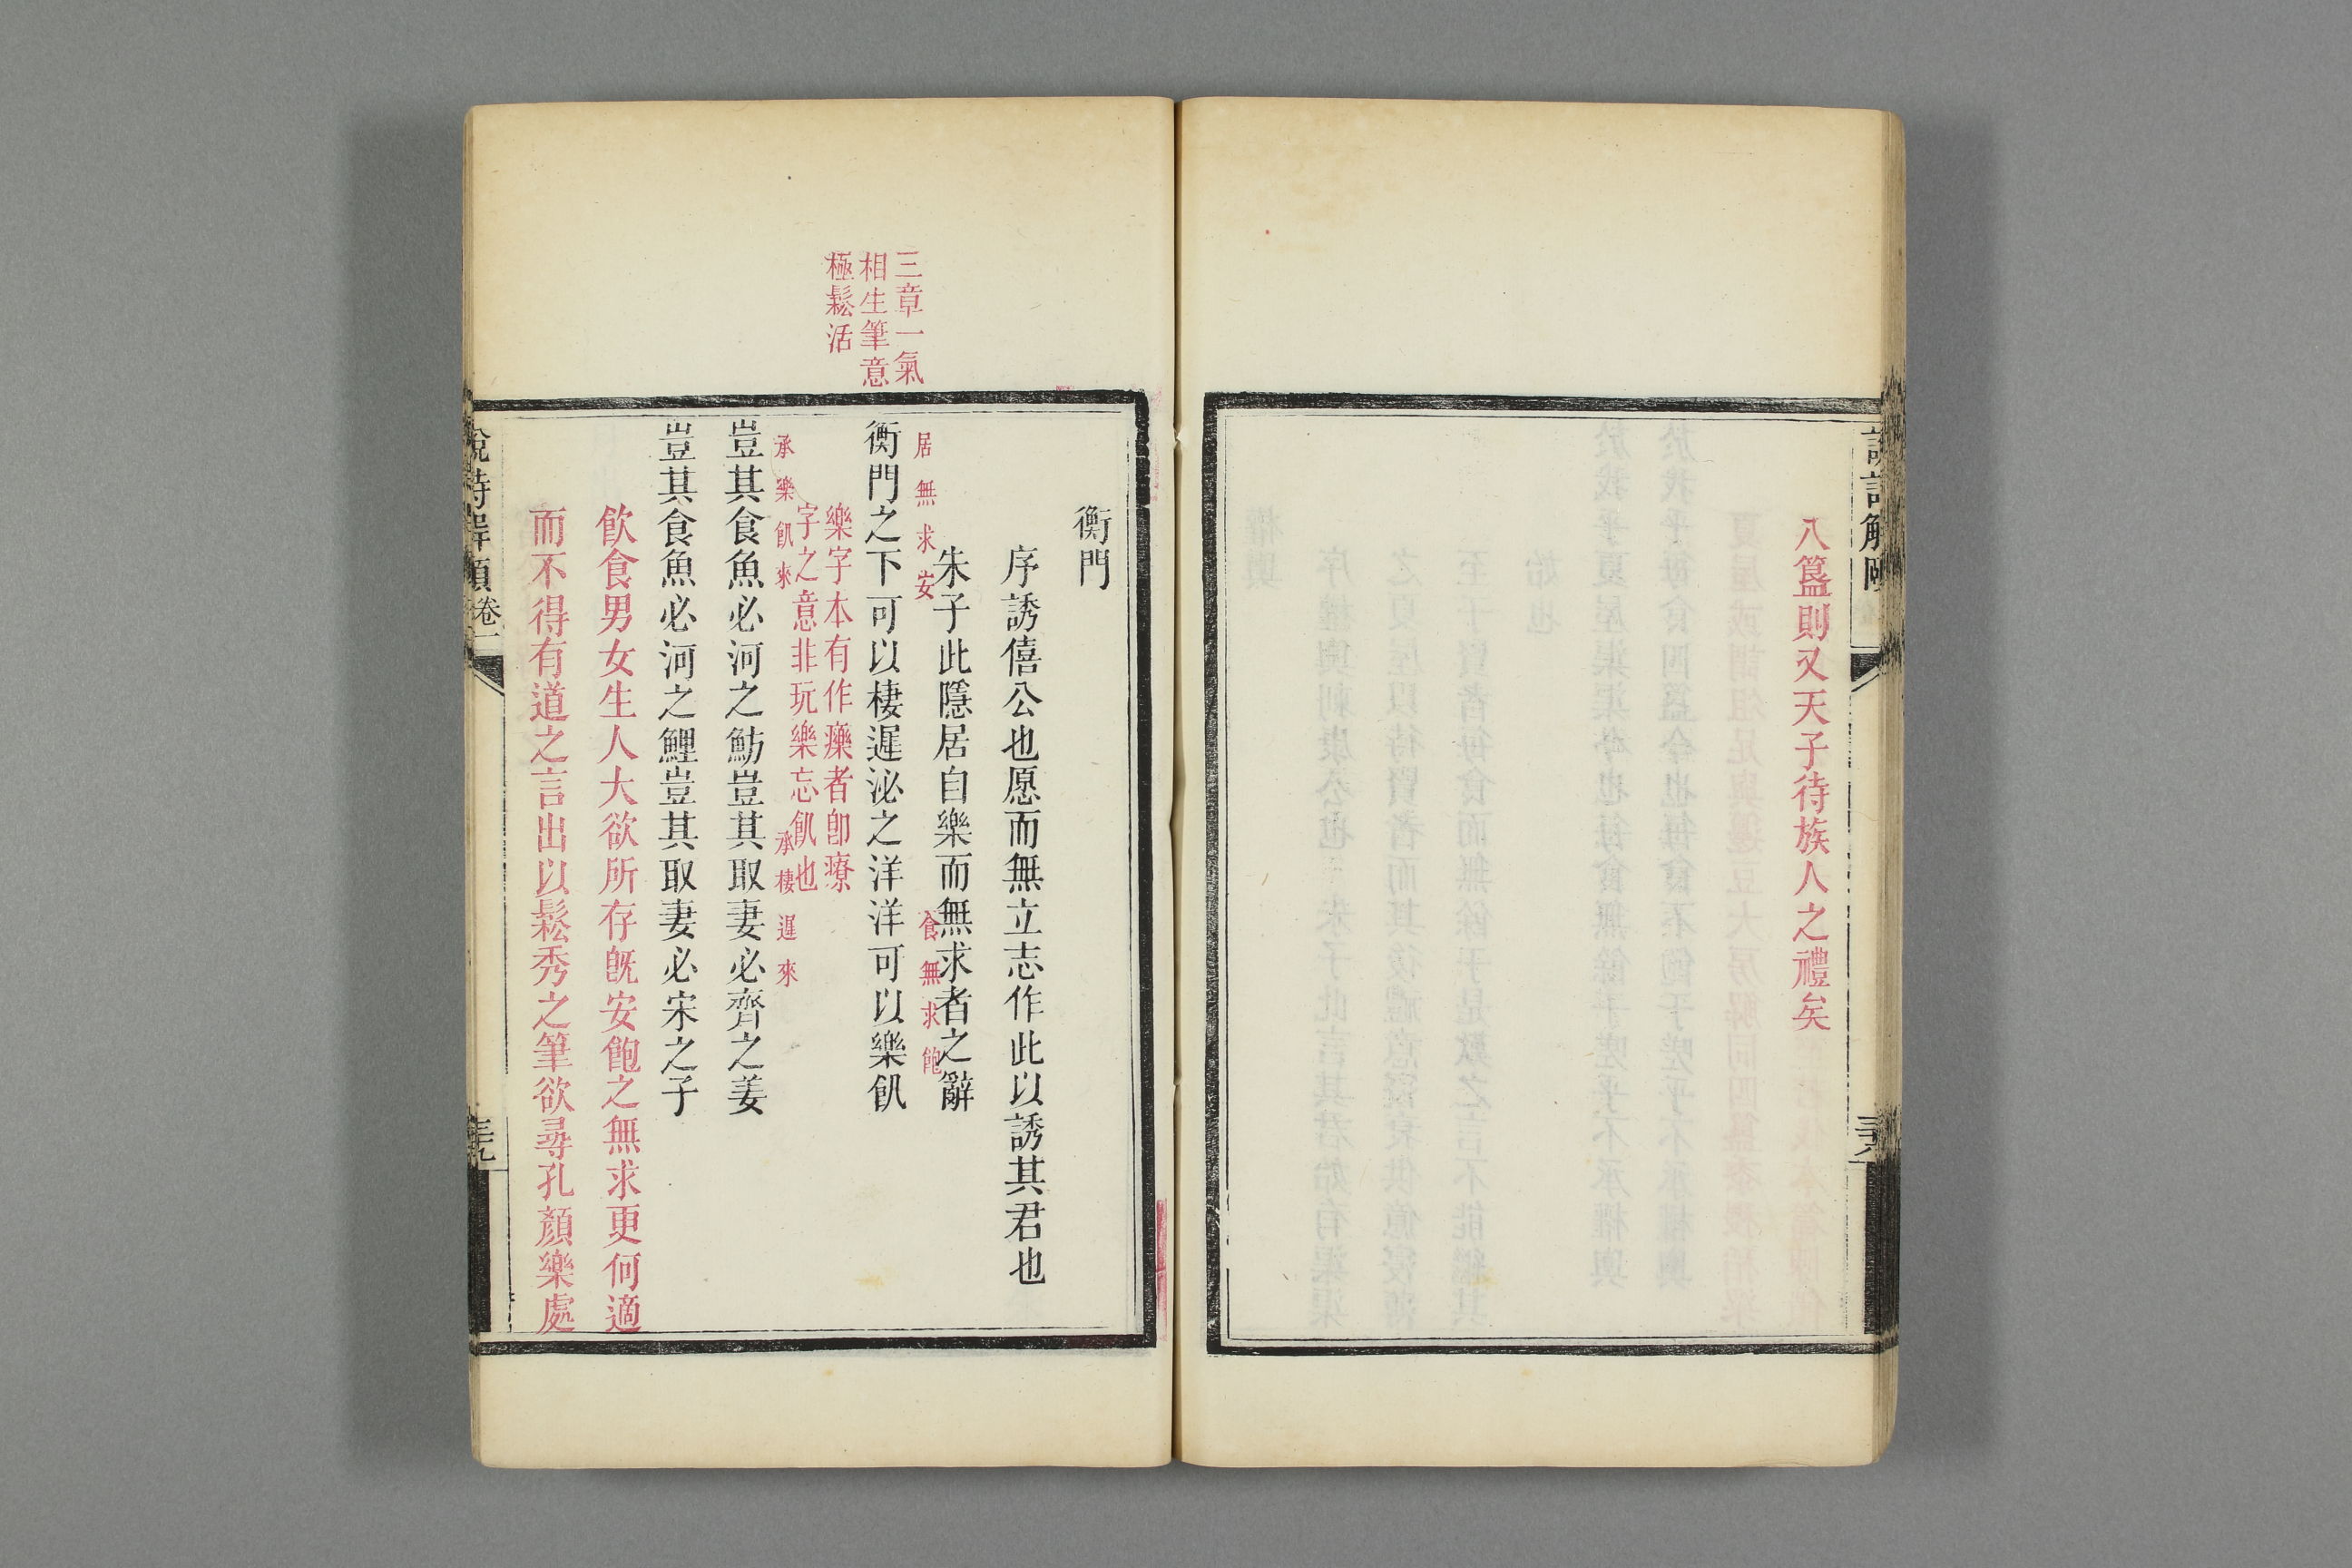 八簋則又天子待族人之禮矣
說詩解頤
三十八
衡門
序誘僖公也愿而無立志作此以誘其君也
朱子此隱居自樂而無求者之辭
三章一氣
相生筆意
極鬆活
居無求安
食無求飽
衡門之下可以棲遲泌之洋洋可以樂飢
樂字本有作𤻲者卽療
字之意非玩樂忘飢也
承樂飢來
承棲遲來
豈其食魚必河之魴豈其取妻必齊之姜
豈其食魚必河之鯉豈其取妻必宋之子
飮食男女生人大欲所存旣安飽之無求更何適
而不得有道之言出以鬆秀之筆欲尋孔顏樂處
說詩解頤
卷一
三十九